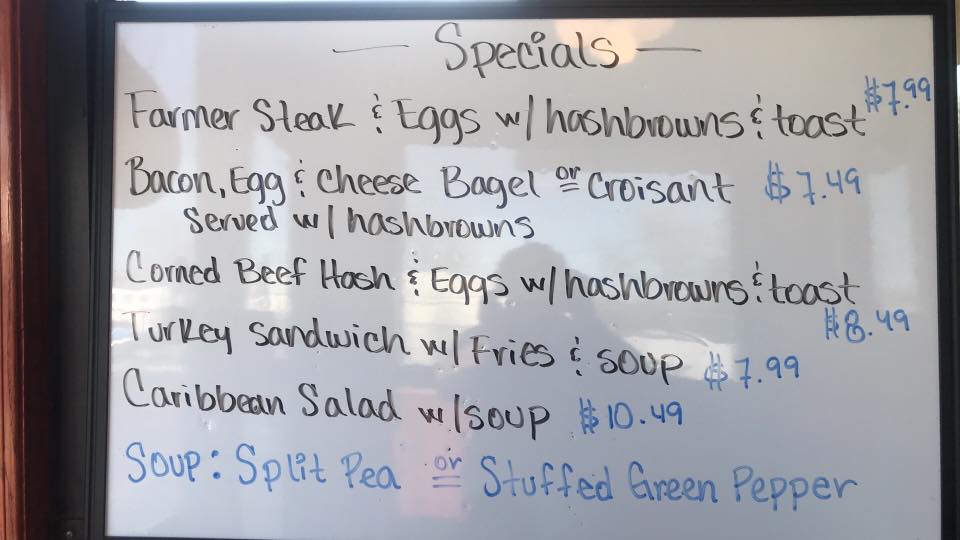 — Specials —
Farmer Steak & Eggs w/ hashbrowns & toast $7.99
Bacon, Egg & Cheese Bagel or Croisant $7.49
Served w/ hashbrowns
Corned Beef Hash & Eggs w/ hashbrowns & toast
$8.49
Turkey Sandwich w/ Fries & soup $7.99
Caribbean Salad w/soup $10.49
Soup: Split Pea or Stuffed Green Pepper